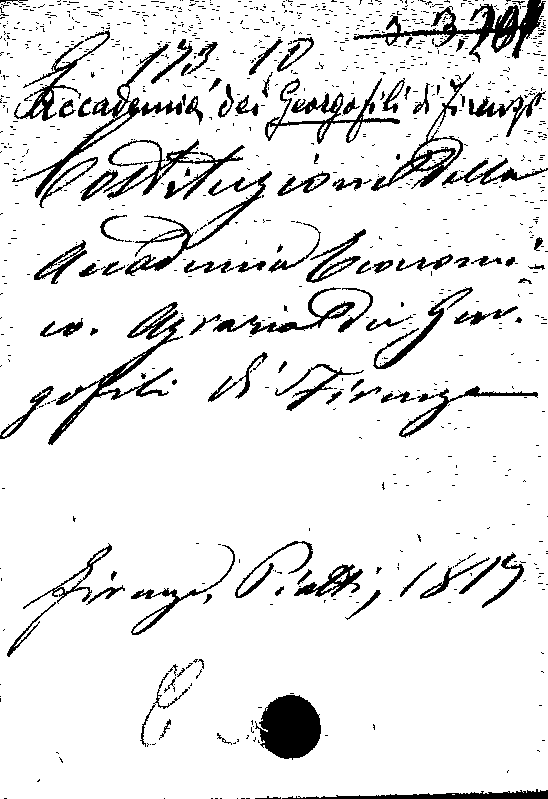 G. 173, 10
Accademia dei Georgofili di Firenze
Costituzioni della
Accademia Economi-
co. Agraria dei Geor.
gofili di Firenze
Firenze, Piatti, 1819